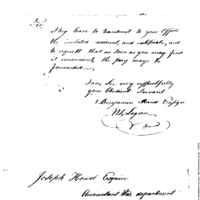 Sir
I beg leave to transmit to your Office
the inclosed account, and certificate, and
to request that as soon as you may find
it convenient, the pay may be
forwarded.
I am Sir very respectfully
your Obedient Servant
Benjamin Hand Ensign
US Legion
Joseph Howell Esquire
Accountant War department